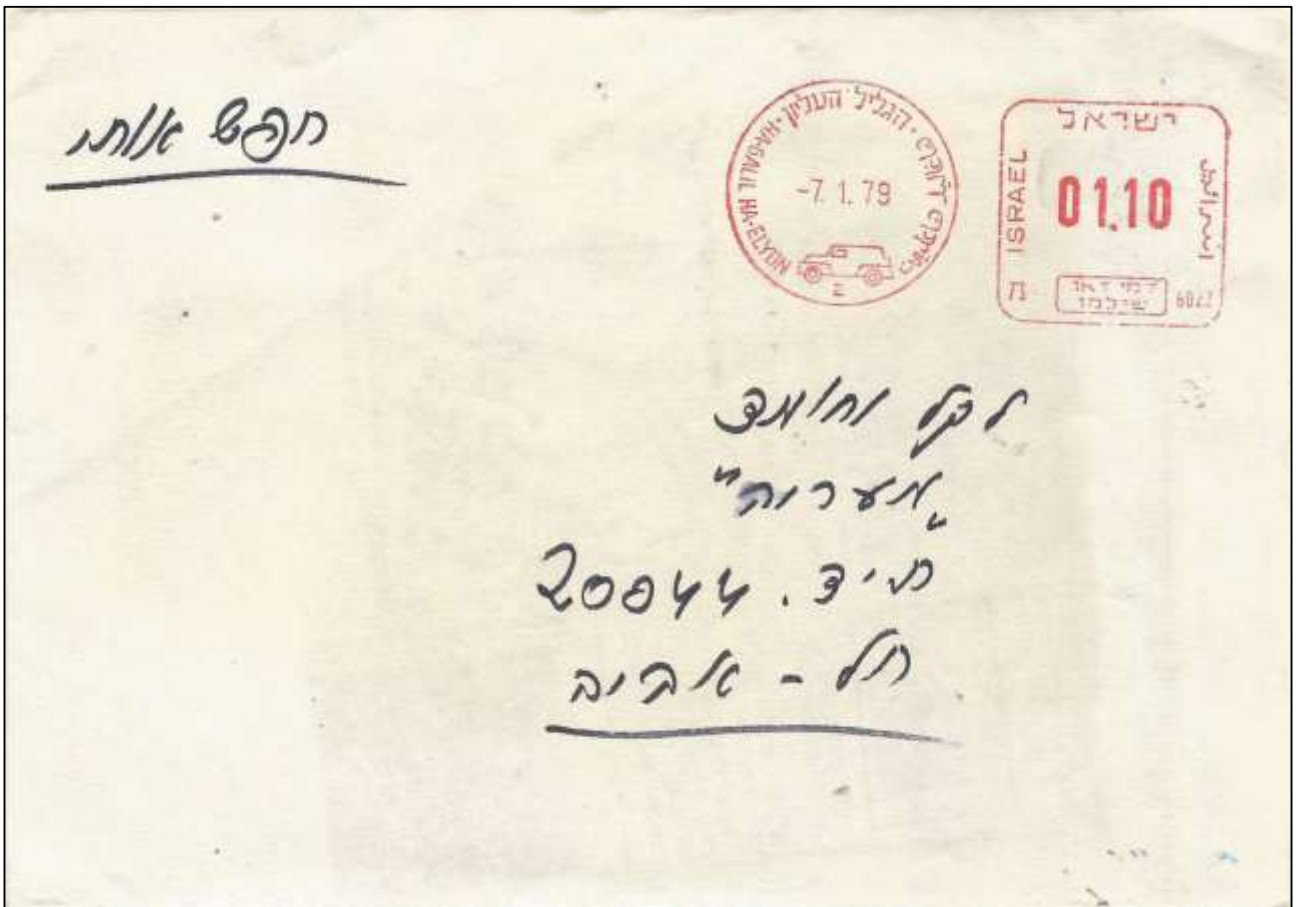 חפש אותי
הגליל העליון · HA-GALIL HA-ELYON
-7.1.79
ישראל
ISRAEL
01.10
اسرائيل
דמי דאר
שולמו
לקל וחומר
"מעריב"
ת.ד. 20044
תל - אביב